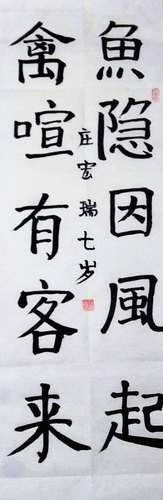 魚隐因風起
禽喧有客来
庄宏瑞七岁